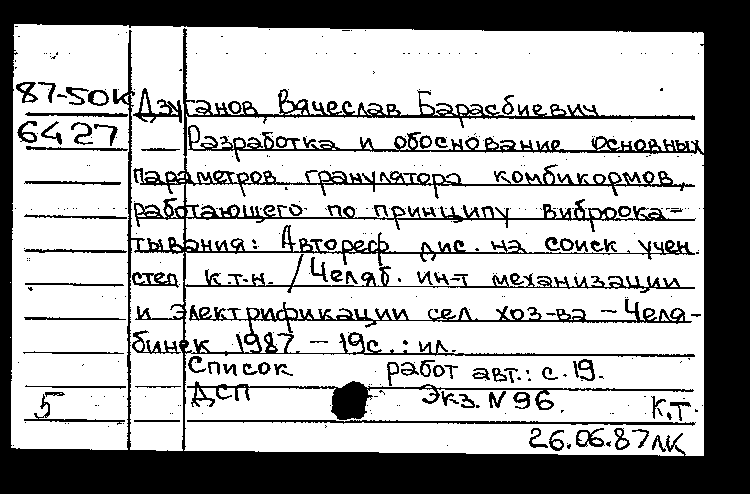 87-50К Дзуганов, Вячеслав Барасбиевич
6427 Разработка и обоснование основных
параметров гранулятора комбикормов,
работающего по принципу виброока-
тывания: Автореф. дис. на соиск. учен.
степ к.т.н. / Челяб. ин-т механизации
и электрификации сел. хоз-ва - Челя-
бинск, 1987. - 19с.: ил.
Список работ авт.: с. 19.
ДСП Экз. N 96.
5 К.Т.
26.06.87 ЛК